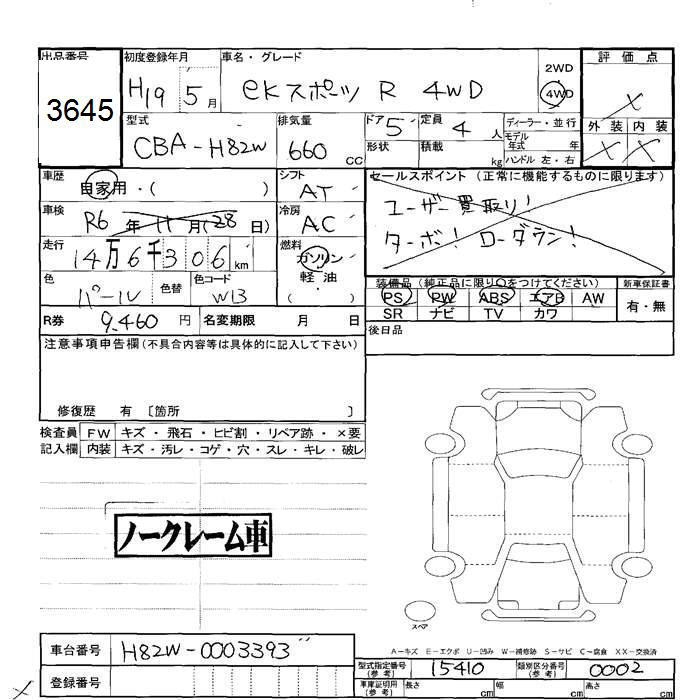 出品番号 初度登録年月 車名・グレード 2WD 評価点
3645 H19 5月 eKスポーツ R 4WD 4WD ×
型式 排気量 ドア 定員 ディーラー・並行 外装 内装
CBA-H82W 660 CC 5 4 人 モデル 年式 年 × ×
形状 積載 kg ハンドル 左・右
車歴 シフト セールスポイント (正常に機能するものに限ります)
自家用・( ) AT ユーザー買取り!
車検 冷房 ターボ! ローダウン!
R6 年 11 月(28 日) AC
走行 燃料
14万6千306 km ガソリン
色 色替 色コード 軽油 装備品(純正品に限り○をつけてください) 新車保証書
パール W13 ( ) PS PW ABS エアB AW 有・無
R券 9.460 円 名変期限 月 日 SR ナビ TV カワ
注意事項申告欄(不具合内容等は具体的に記入して下さい) 後日品
修復歴 有 〔箇所 〕
検査員 FW キズ・飛石・ヒビ割・リペア跡・×要
記入欄 内装 キズ・汚レ・コゲ・穴・スレ・キレ・破レ
ノークレーム車
スペア
A-キズ E-エクボ U-凹み W-補修跡 S-サビ C-腐食 XX-交換済
車台番号 H82W-0003393
型式指定番号 (参考) 15410 類別区分番号 (参考) 0002
登録番号 車庫証明用 (参考) 長さ cm 幅 cm 高さ cm
×